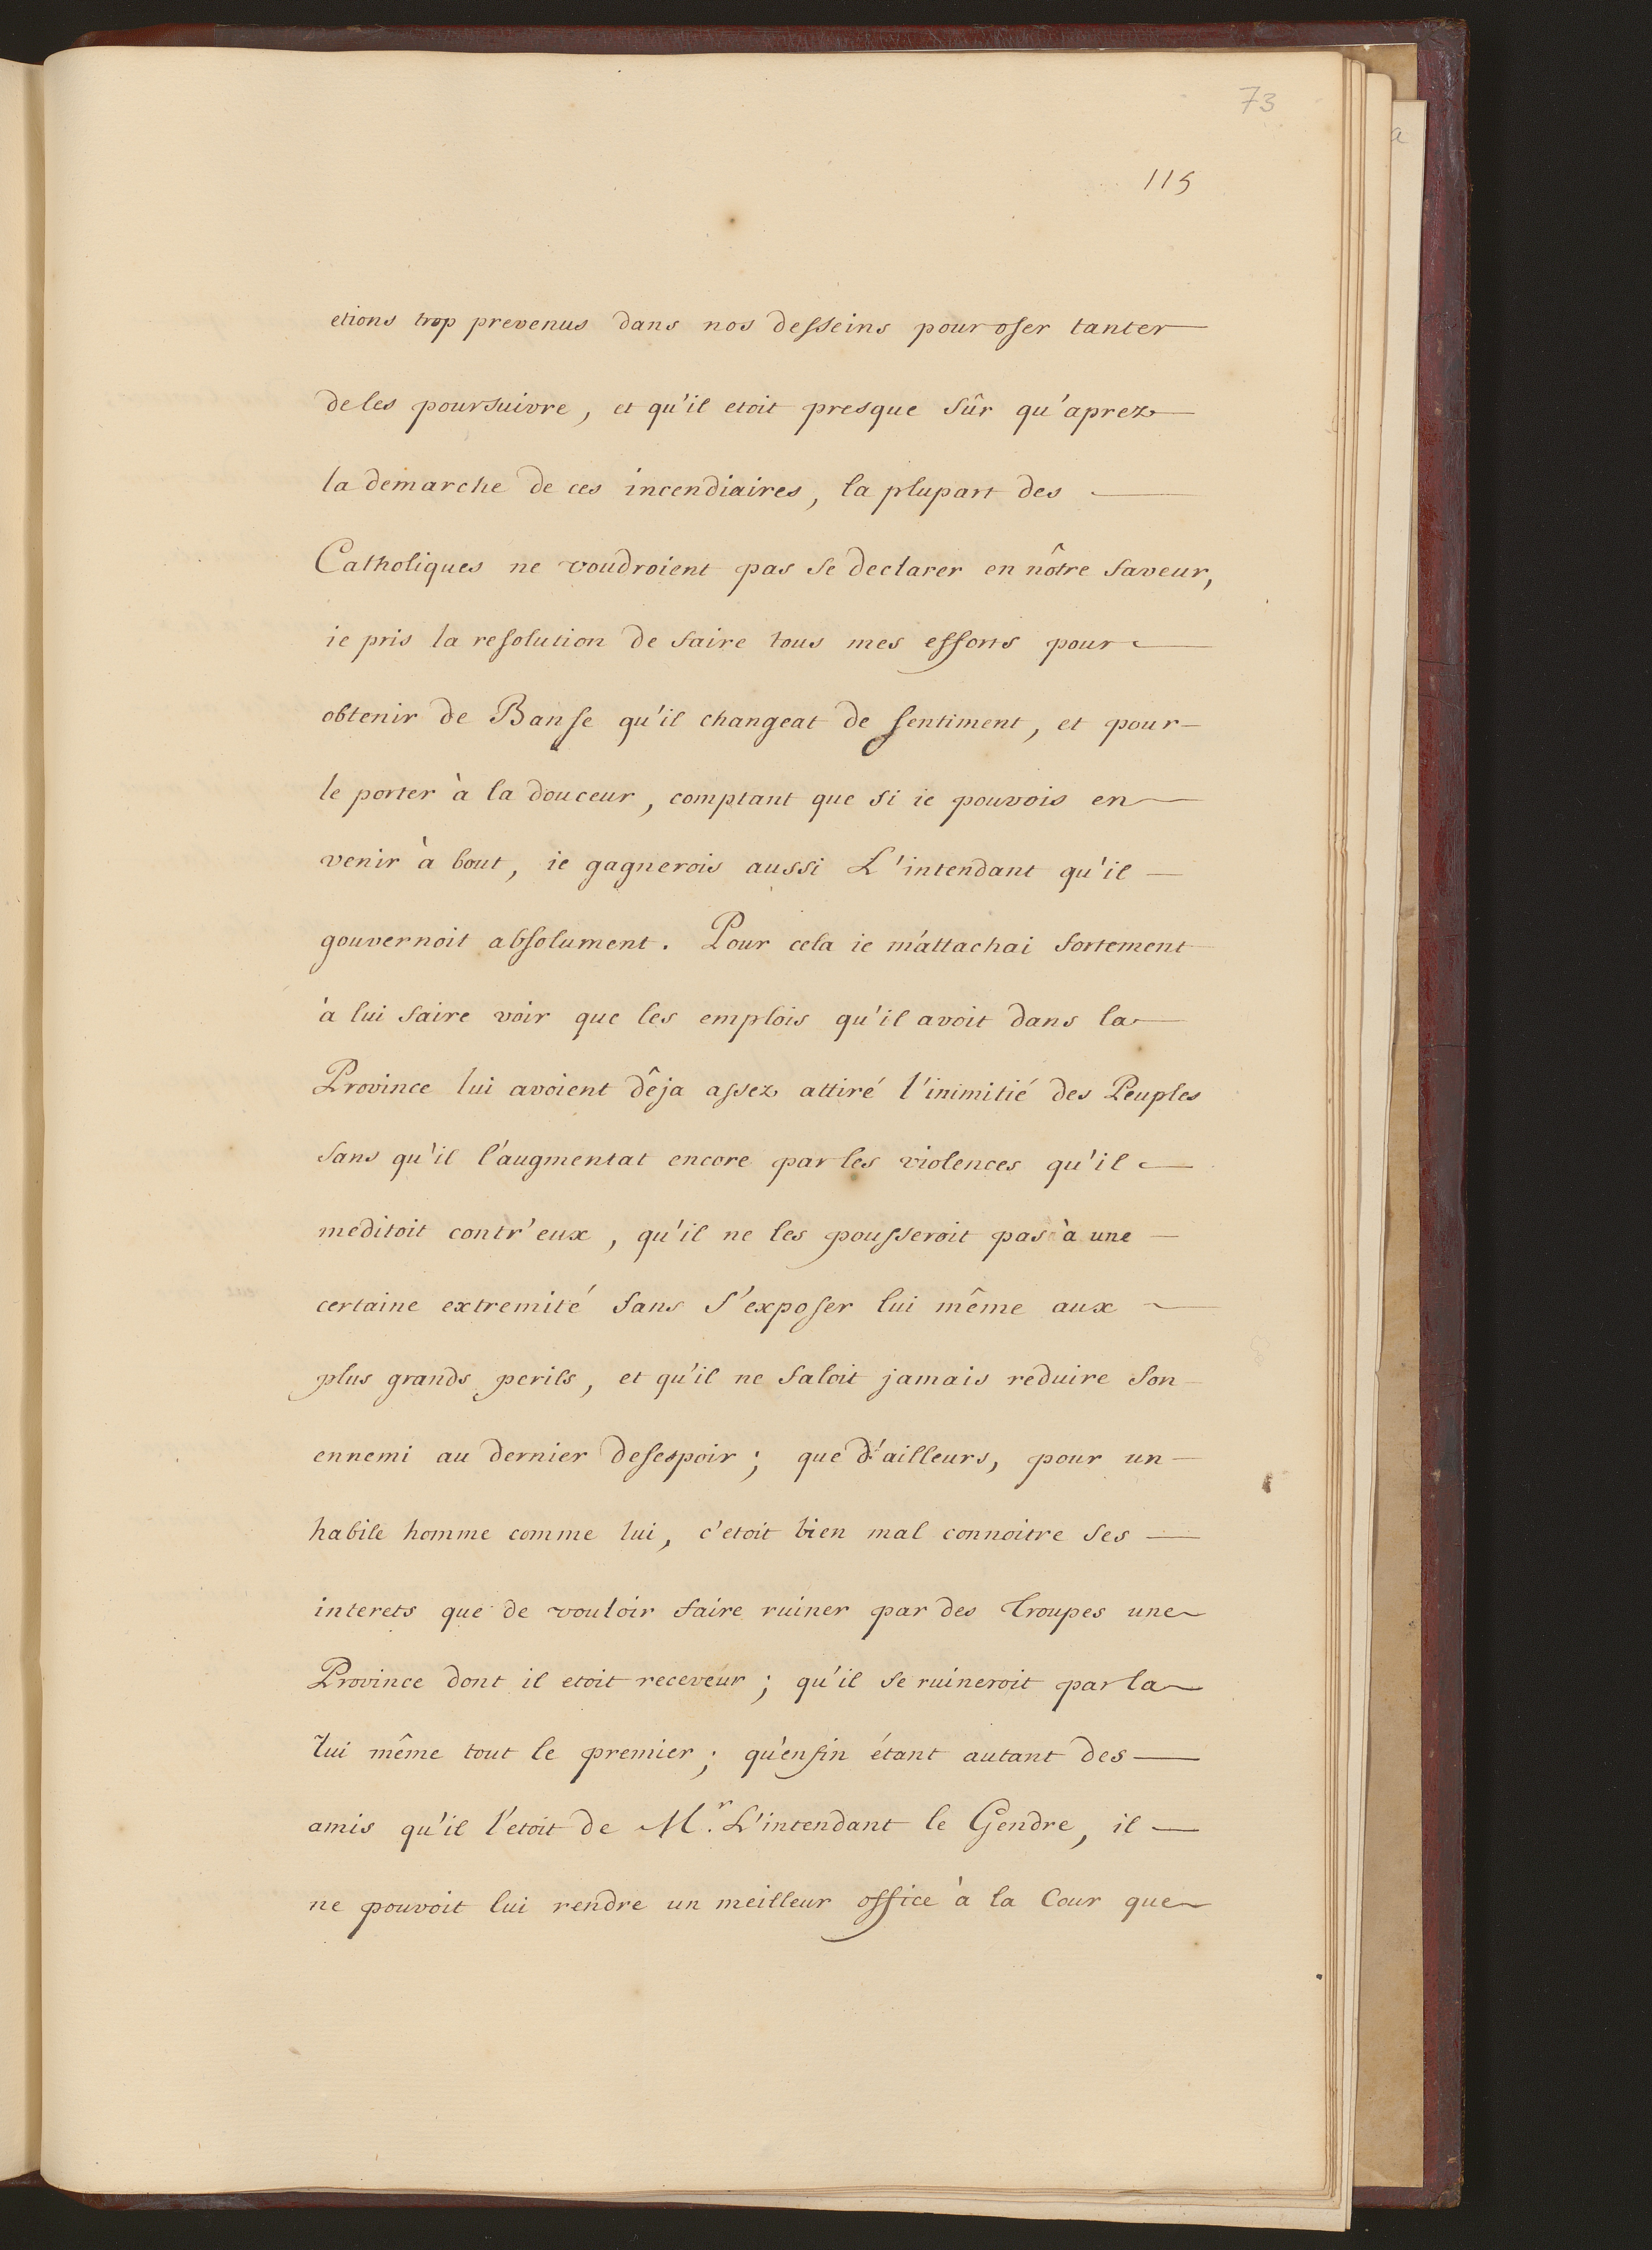 73
115
etions trop prevenus dans nos desseins pour oser tanter
de les poursuivre, et qu'il etoit presque sûr qu'aprez
la demarche de ces incendiaires, la plupart des
Catholiques ne voudroient pas se declarer en nôtre faveur,
ie pris la resolution de faire tous mes efforts pour
obtenir de Banse qu'il changeat de sentiment, et pour
le porter à la douceur, comptant que si ie pouvois en
venir à bout, ie gagnerois aussi L'intendant qu'il
gouvernoit absolument. Pour cela ie m'attachai fortement
à lui faire voir que les emplois qu'il avoit dans la
Province lui avoient dêja assez attiré l'inimitié des Peuples
sans qu'il l'augmentat encore par les violences qu'il
meditoit contr'eux, qu'il ne les pousseroit pas à une
certaine extremité sans s'exposer lui même aux
plus grands perils, et qu'il ne faloit jamais reduire son
ennemi au dernier desespoir; que d'ailleurs, pour un
habile homme comme lui, c'etoit bien mal connoitre ses
interets que de vouloir faire ruiner par des Troupes une
Province dont il etoit receveur; qu'il se ruineroit par la
lui même tout le premier; qu'enfin étant autant des
amis qu'il l'etoit de Mr. L'intendant le Gendre, il
ne pouvoit lui rendre un meilleur office à la Cour que